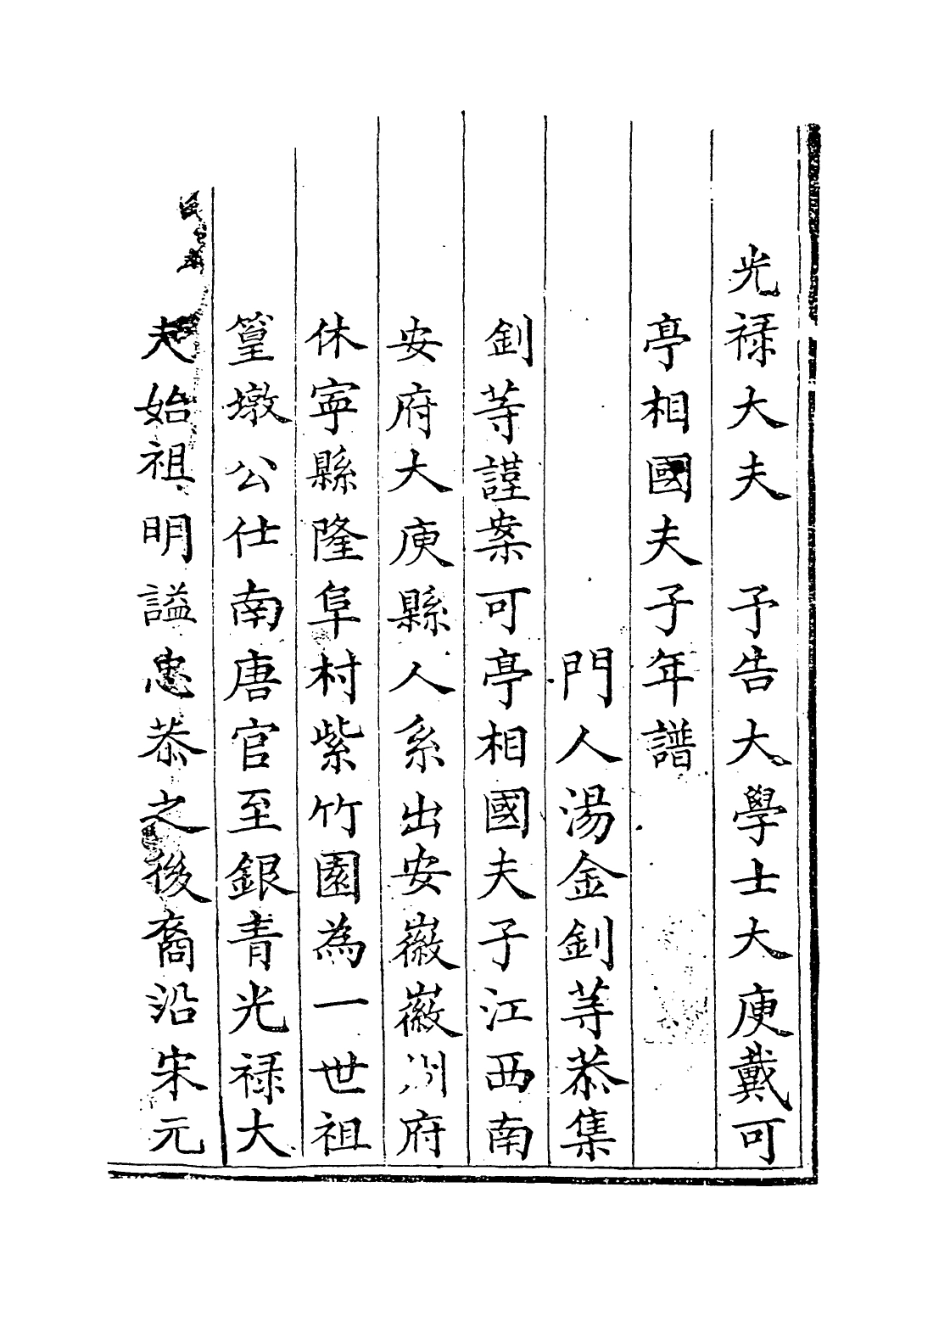 光祿大夫　予告大學士大庾戴可
亭相國夫子年譜
門人湯金釗等恭集
釗等謹案可亭相國夫子江西南
安府大庾縣人系出安徽徽州府
休寧縣隆阜村紫竹園為一世祖
篁墩公仕南唐官至銀青光祿大
夫始祖明謚忠恭之後裔沿宋元